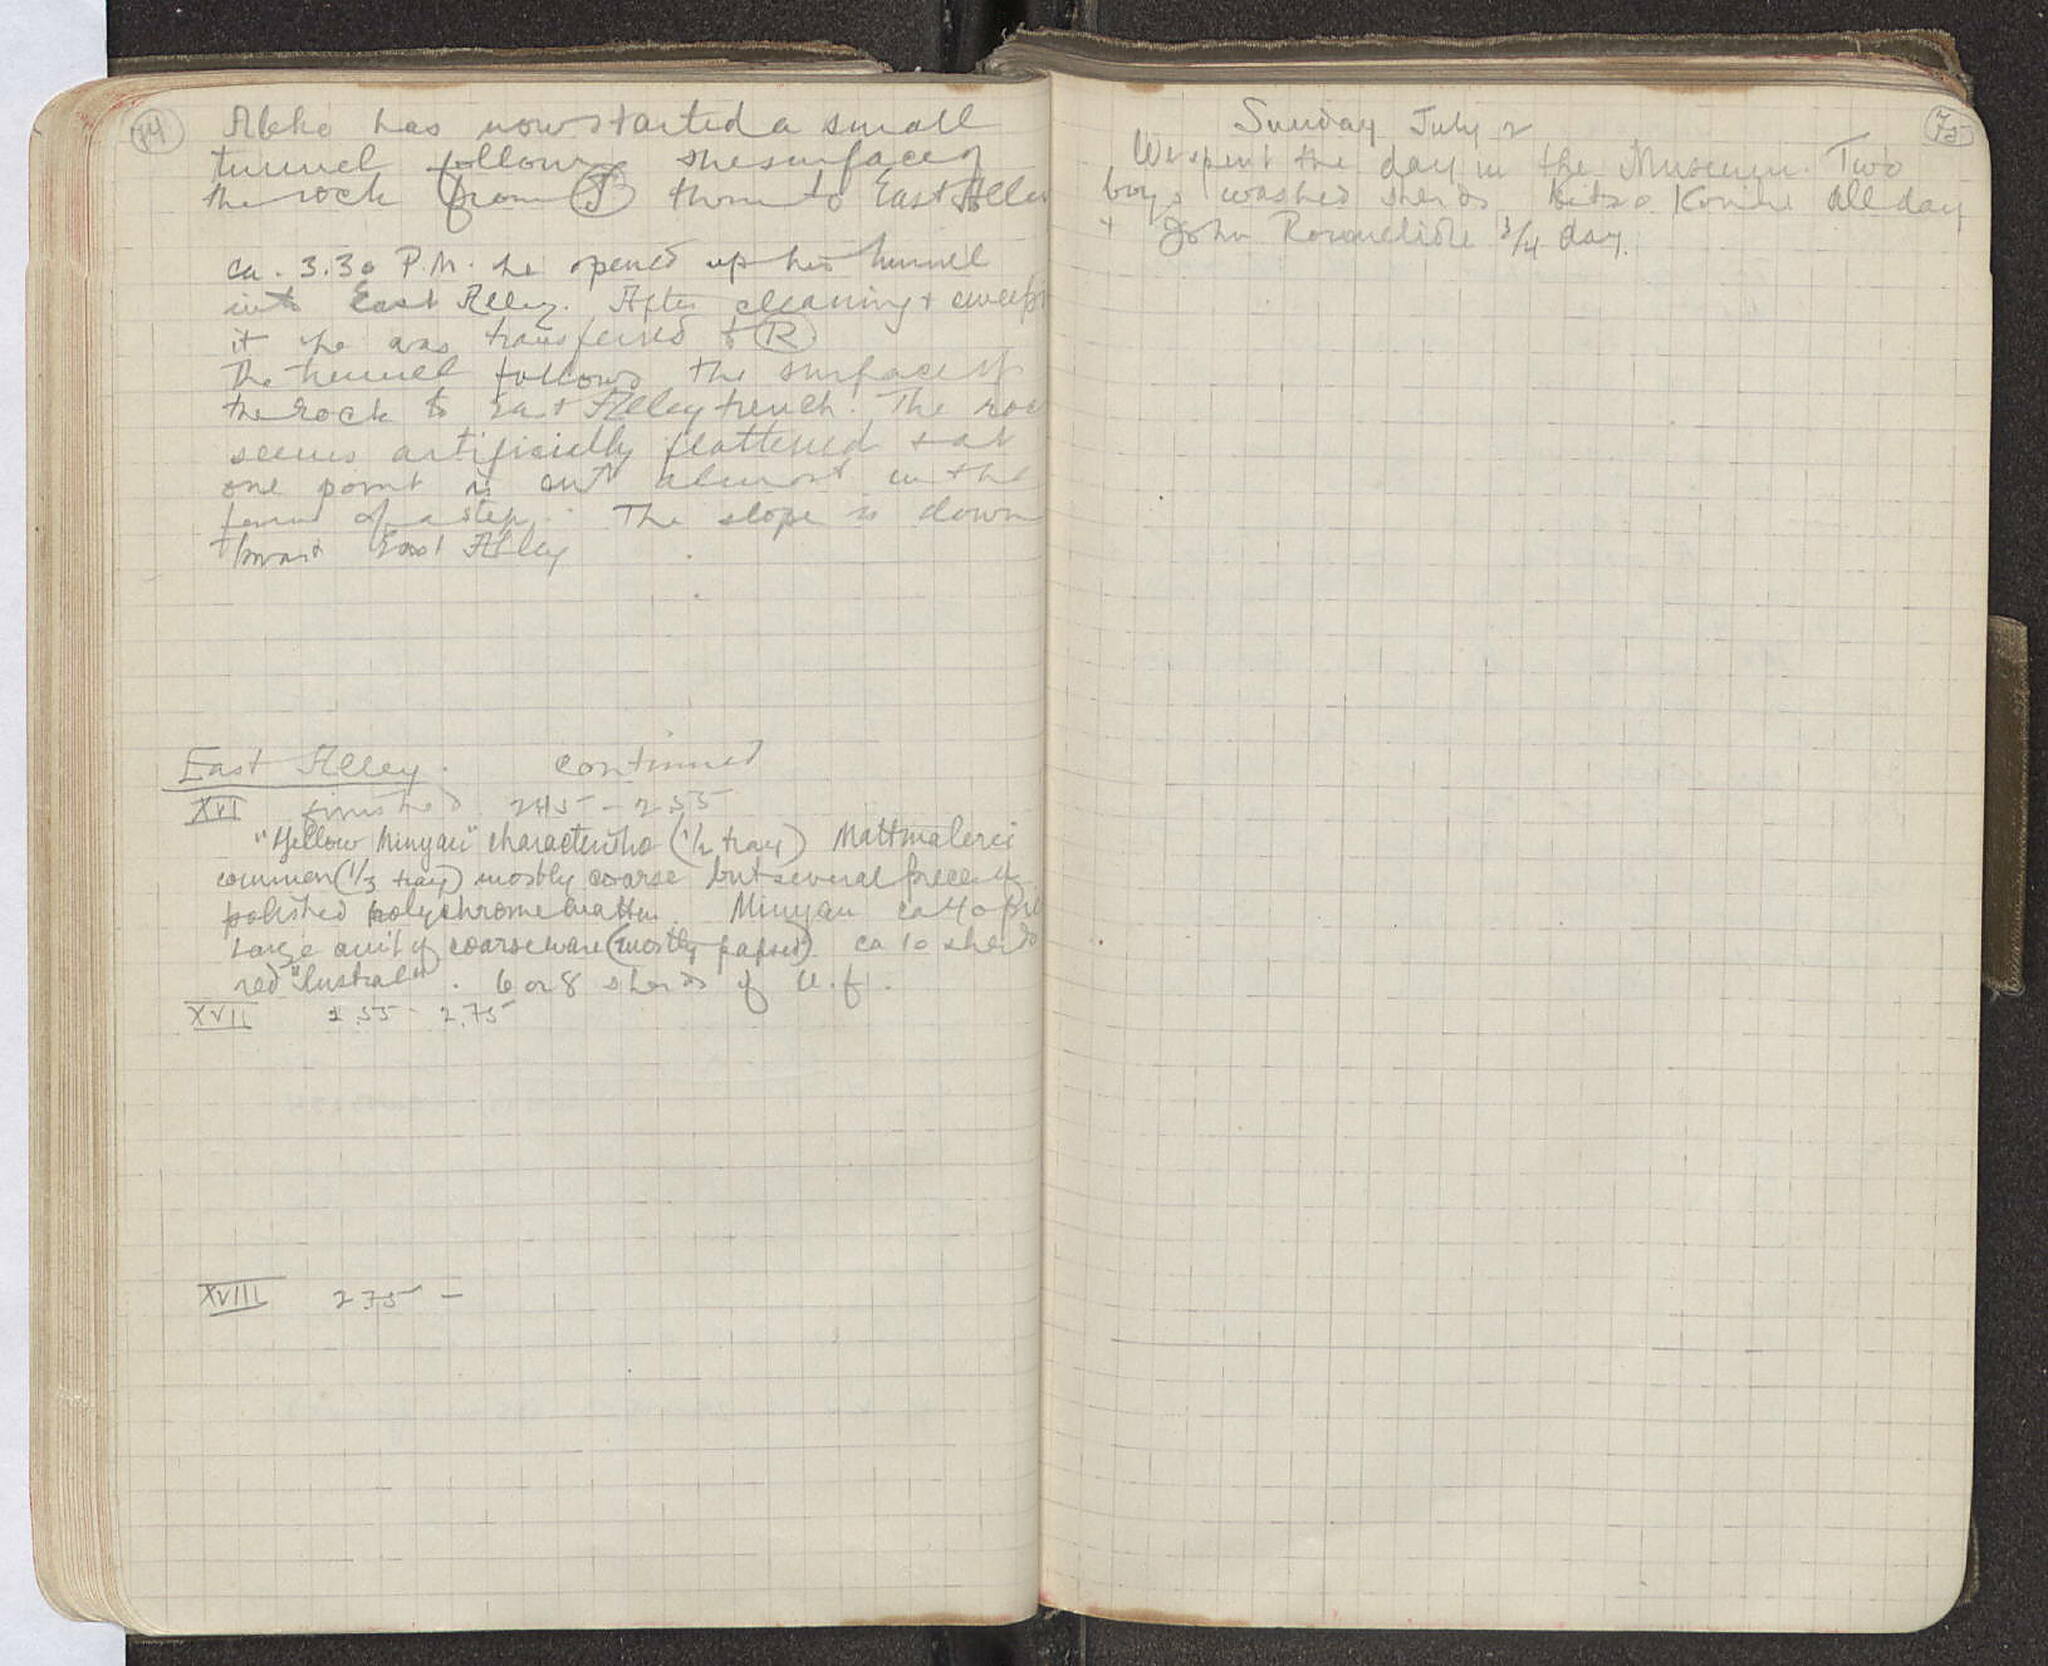 74
Aleko has now started a small
tunnel following the surface of
the rock from T thro to East Alley
ca. 3.30 P.M. he opened up his tunnel
into East Alley. After cleaning + sweeping
it he was transferred to R
The tunnel follows the surface of
the rock to East Alley trench. The rock
seems artificially flattened + at
one point is cut almost in the
form of a step. The slope is down
toward East Alley
East Alley. continued
XVI finished 2.45 - 2.55
"Yellow Minyan" characteristic (1/2 tray) Mattmalerei
common (1/3 tray) mostly coarse but several pieces of
polished polychrome matt. Minyan ca 40
Large quit of coarse ware (mostly papsed) ca 10 sherds
red "lustral". 6 or 8 sherds of U.f.
XVII 2.55 - 2.75
XVIII 2.75 -
75
Sunday July 2
We spent the day in the Museum. Two
boys washed sherds Kitso all day
+ John 3/4 day.